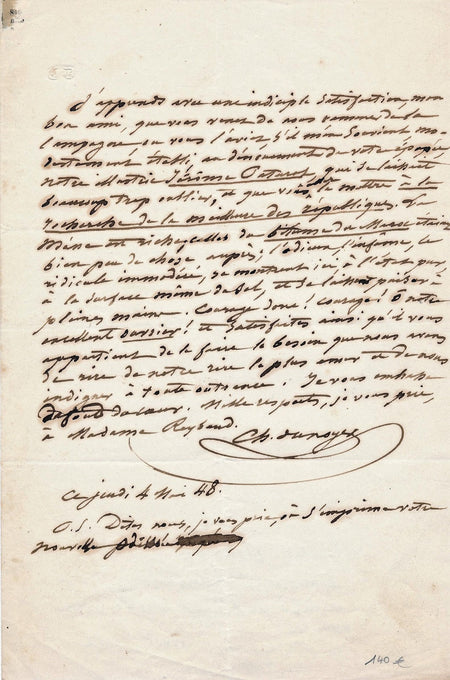 J'apprends avec une indicible satisfaction, mon
bon ami, que vous venez de nous ramener de la
campagne, où vous l'aviez, s'il m'en souvient mo-
destement établi, au dénouement de votre épopée,
notre illustre Jérôme Paturot, qui se laissait
beaucoup trop oublier, et que vous le mettre à la
recherche de la meilleure des républiques. La
mine est riche, celles de bitume du Maroc étaient
bien peu de chose auprès; l'odieux, l'infâme, le
ridicule immodéré, se montrent ici à l'état pur,
à la surface même du sol, et se laissent puiser à
pleines mains. Courage donc! courage! ô notre
excellent ouvrier! et satisfaites ainsi qu'il vous
appartient de le faire le besoin que nous avons
de rire de notre rire le plus amer et de nous
indigner à toute outrance. Je vous embrasse
de fond du cœur. Mille respects, je vous prie,
à Madame Reybaud.
Ch. Dunoyer
Ce jeudi 4 Mai 48.
P.S. Dites nous, je vous prie, où s'imprime votre
nouvelle
140 €